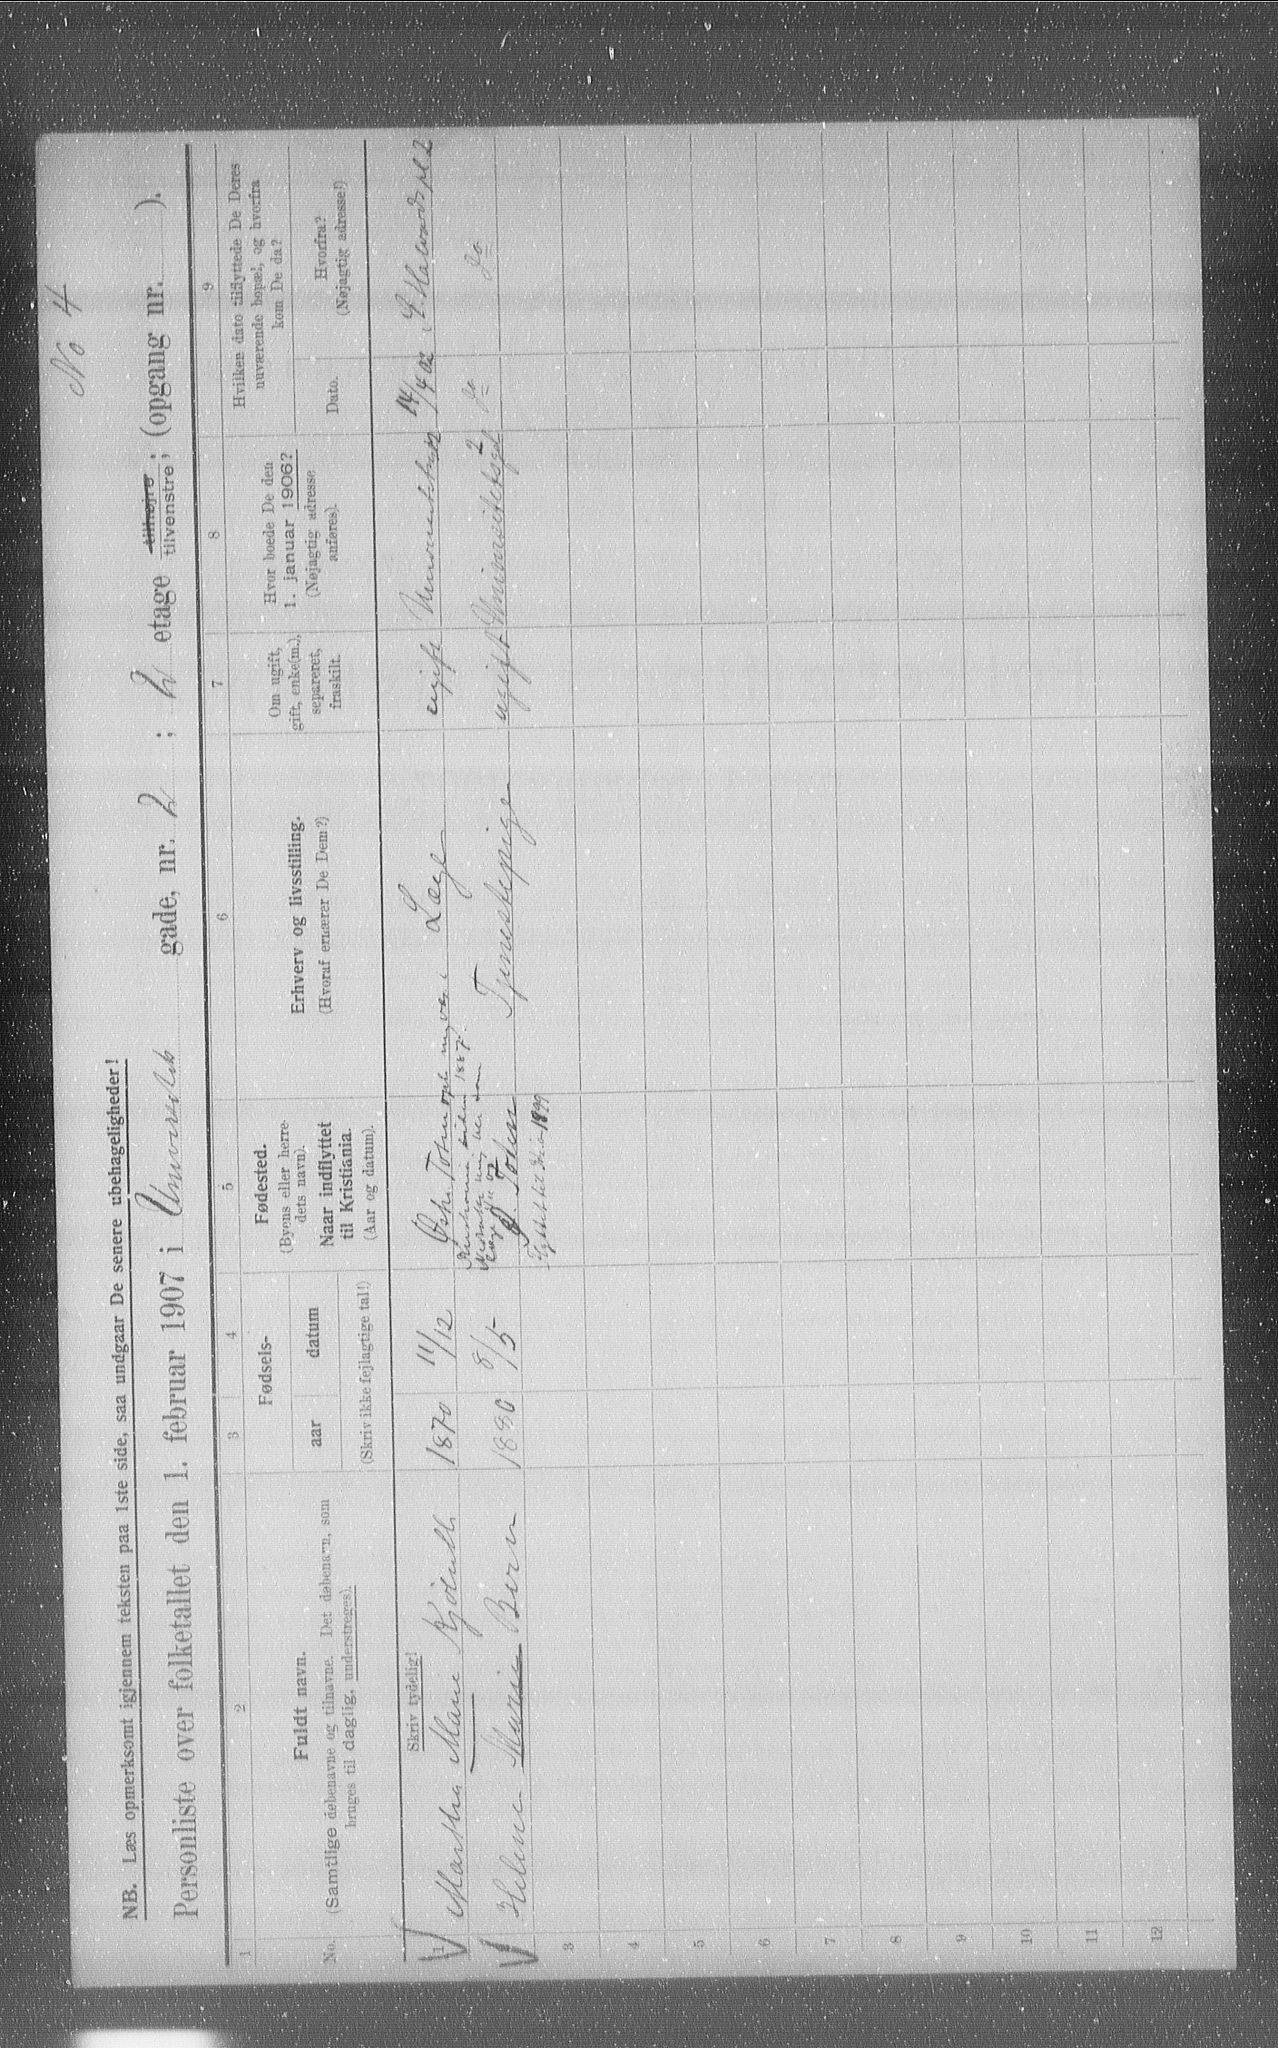 No 4
NB. Læs opmerksomt igjennem teksten paa 1ste side, saa undgaar De senere ubehageligheder!
Personliste over folketallet den 1. februar 1907 i Universitets gade, nr. 2 ; 2 etage tilhøjre tilvenstre; (opgang nr. ).
1 2 3 4 5 6 7 8 9
No.
Fuldt navn.
(Samtlige døbenavne og tilnavne. Det døbenavn, som
bruges til daglig, understreges).
Fødsels-
aar datum
(Skriv ikke fejlagtige tal!)
Fødested.
(Byens eller herre-
dets navn).
Naar indflyttet
til Kristiania.
(Aar og datum).
Erhverv og livsstilling.
(Hvoraf ernærer De Dem?)
Om ugift,
gift, enke(m.),
separeret,
fraskilt.
Hvor boede De den
1. januar 1906?
(Nøjagtig adresse
anføres).
Hvilken dato tilflyttede De Deres
nuværende bopæl, og hvorfra
kom De da?
Dato.
Hvorfra?
(Nøjagtig adresse!)
Skriv tydelig!
1 Martha Marie 1870 11/12 Læge ugift 14/4 02
Helene Marie Bern 8/5 Ø. Toten Tjenestepige ugift Universitetsgd 2 do do
1899
3
4
5
6
7
8
9
10
11
12